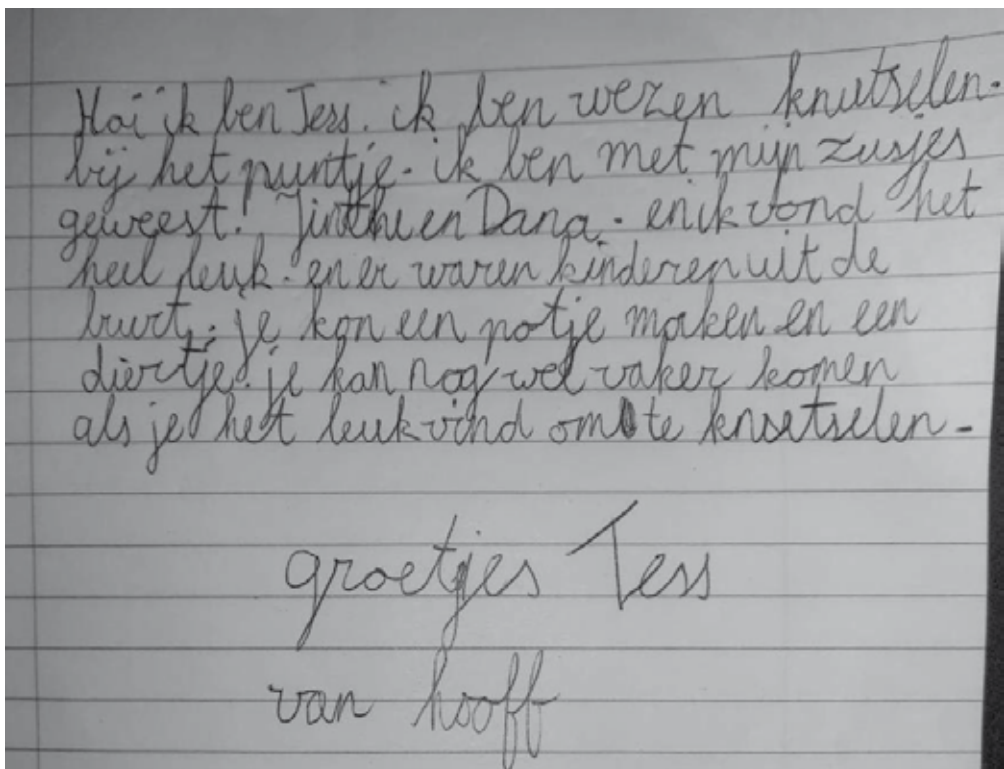 Hoi ik ben Tess. ik ben wezen knutselen.
bij het puntje. ik ben met mijn zusjes
geweest! Jinthe en Dana. en ik vond het
heel leuk. en er waren kinderen uit de
buurt. je kon een potje maken en een
diertje. je kan nog wel vaker komen
als je het leuk vind om te knutselen.
groetjes Tess
van hooff